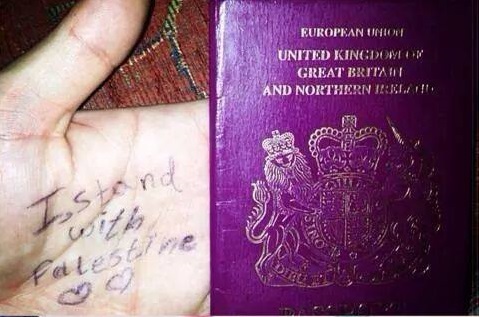 I stand
with
Palestine
EUROPEAN UNION
UNITED KINGDOM OF
GREAT BRITAIN
AND NORTHERN IRELAND